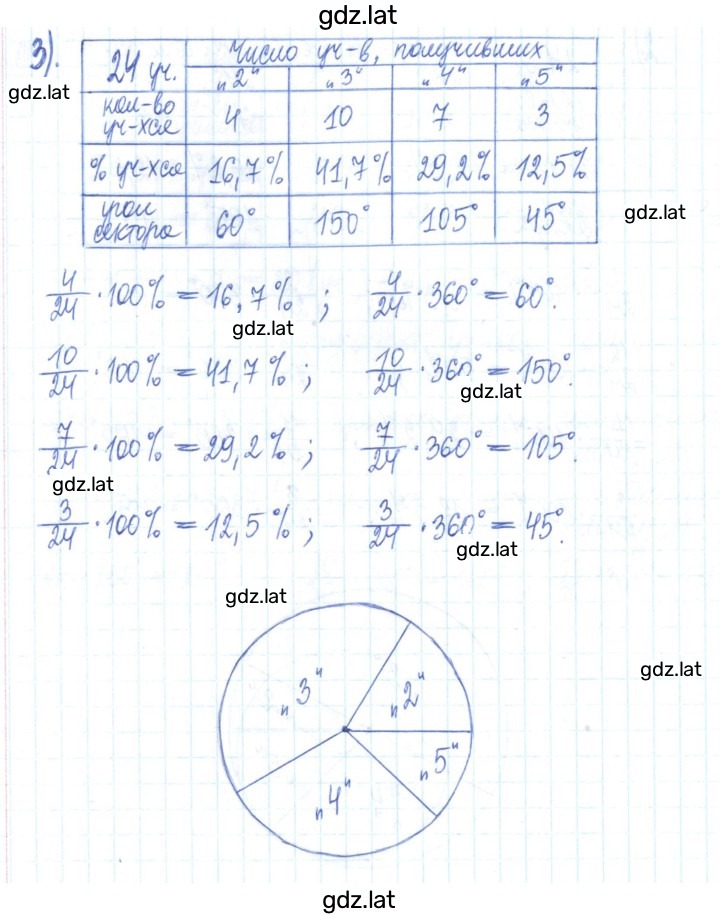 gdz.lat
3). 24 уч. Число уч-в, получивших
"2" "3" "4" "5"
gdz.lat
кол-во уч-хся 4 10 7 3
% уч-хся 16,7% 41,7% 29,2% 12,5%
угол сектора 60° 150° 105° 45°
gdz.lat
4/24 · 100% = 16,7% ; 4/24 · 360° = 60°.
gdz.lat
10/24 · 100% = 41,7% ; 10/24 · 360° = 150°.
gdz.lat
7/24 · 100% = 29,2% ; 7/24 · 360° = 105°.
gdz.lat
3/24 · 100% = 12,5% ; 3/24 · 360° = 45°.
gdz.lat
gdz.lat
gdz.lat
"3" "2"
"5"
"4"
gdz.lat